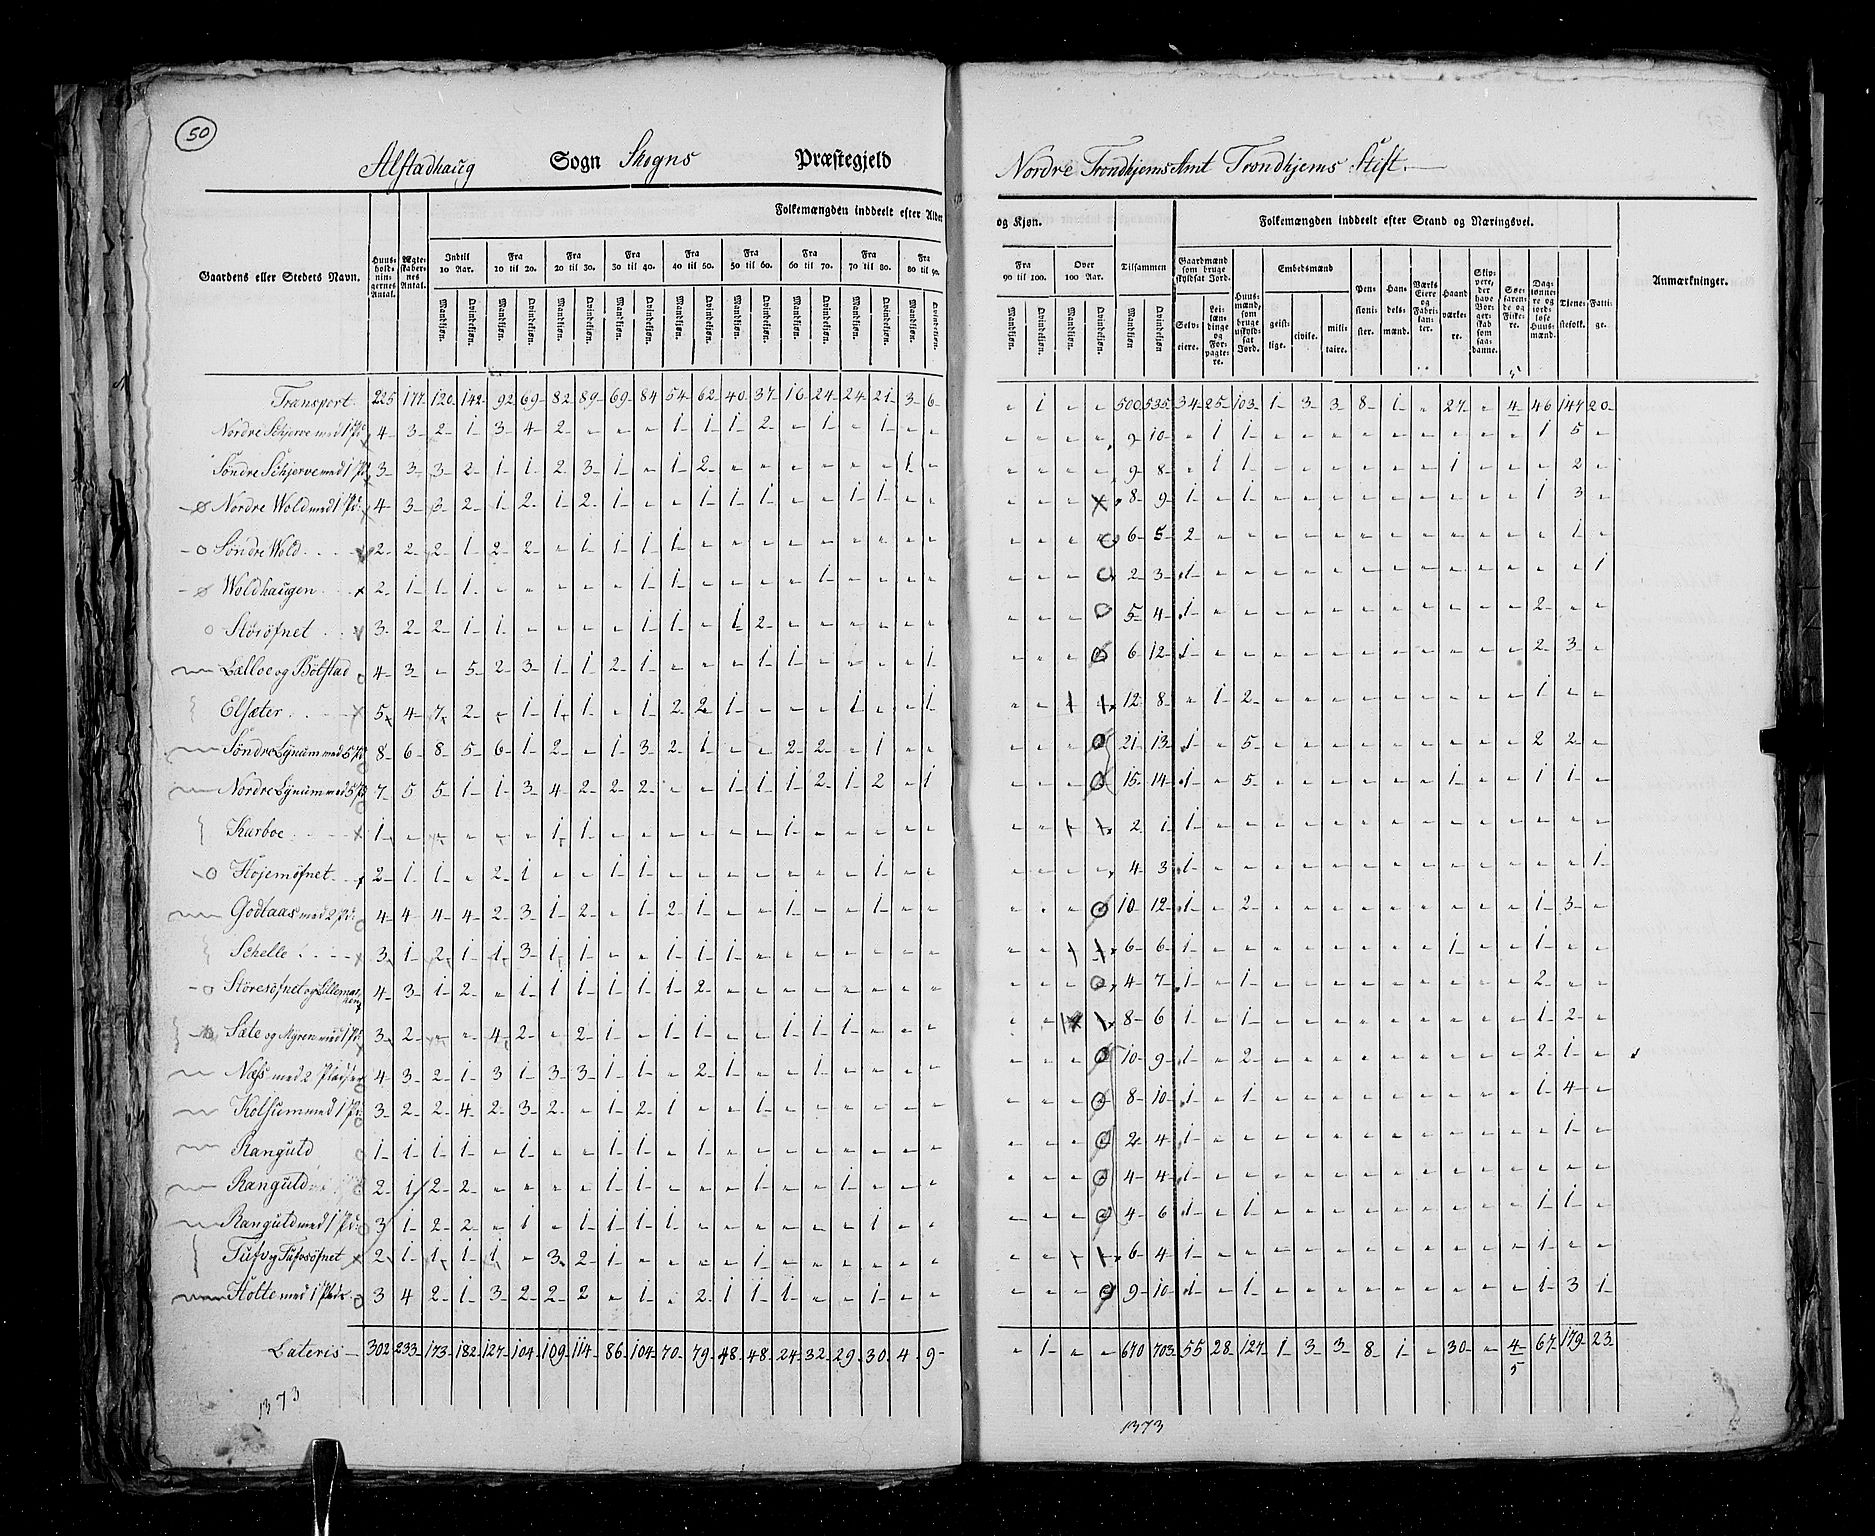 50
Alstadhaug Sogn Skogns Præstegjeld
Nordre Trondhjems Amt Trondhjems Stift.
Gaardens eller Steders Navn. Huusholdningernes Antal. Ægteskabernes Antal. Folkemængden inddeelt efter Alder
og Kjøn. Folkemængden inddeelt efter Stand og Næringsvei. Anmærkninger.
Indtil 10 Aar. Fra 10 til 20. Fra 20 til 30. Fra 30 til 40. Fra 40 til 50. Fra 50 til 60. Fra 60 til 70. Fra 70 til 80. Fra 80 til 90.
Fra 90 til 100. Over 100 Aar. Tilsammen
Mandkjøn. Qvindekjøn.
Gaardmænd som bruge skyldsat Jord. Selveiere. Leilændinge og Forpagtere. Huusmænd, som bruge uskyldsat Jord. Embedsmænd geistlige. civile. militaire. Pensionister. Handelsmænd. Værks Eiere og Fabrikanter. Haandværkere. Skippere, der have Borgerskab som saadanne. Søefarende og Fiskere. Daglønnere og jordløse Huusmænd. Tjenestefolk. Fattige.
Transport 225 177 120 142 92 69 82 89 69 84 54 62 40 37 16 24 24 21 3 6 - 1 - - 500 535 34 25 103 1 3 3 8 1 - 27 - 4 46 147 20
Nordre Schjerve med 1 Pl: 4 3 2 1 3 4 2 - - - 1 1 1 2 - 1 - 1 - - - - - - 9 10 - 1 1 - - - - - - - - - 1 5 -
Søndre Schjerve med 1 Pl 3 3 3 2 1 1 2 3 1 - 1 2 - - - - - - 1 - - - - - 9 8 - 1 1 - - - - - - 1 - - - 2 -
Nordre Wold med 1 Pl: 4 3 3 2 1 2 1 2 1 - - 1 1 1 - - 1 1 - - - - - 8 9 1 - 1 - - - - - - - - - 1 3 -
Søndre Wold 2 2 2 1 2 2 - 1 1 1 1 - - - - - - - - - - - - 6 5 2 - - - - - - - - - - - - 1 -
Woldhaugen 2 1 1 1 - - - - - 1 1 - - - - 1 - - - - - - - 2 3 1 - - - - - - - - - - - - - 1
Störöfnet 3 2 2 1 1 - - - - 1 1 - 1 2 - - - - - - - - - 5 4 1 - - - - - - - - - - - 2 - -
Lælloe og Bötstad 4 3 - 5 2 3 1 1 2 1 - - - 1 1 - - - - 1 - - - 6 12 1 - - - - - - - - - - - 2 3 -
Elsæter 5 4 7 2 - 1 1 1 - 1 2 2 1 - - - 1 - - 1 - - 12 8 - 1 2 - - - - - - - - - 1 - -
Söndre Lÿnum med 5 Pl 8 6 8 5 6 1 2 - 1 3 2 1 - - 2 2 - 1 - - - - - 21 13 1 - 5 - - - - - - - - - 2 2 -
Nordre Lÿnum med 5 Pl 7 5 5 1 1 3 4 2 2 2 - - 1 1 1 2 1 2 - 1 - - - 15 14 1 - 5 - - - - - - 1 - - 1 1 -
Karboe 1 - - - - - 1 1 - - - - - - 1 - - - - - - - 2 1 1 - - - - - - - - - - - - - -
Höjemöfnet 2 1 1 - 2 1 - - 1 1 - - - - - - - 1 - - - - - 4 3 1 - - - - - - - - - - - - - 1
Godtaas med 2 Pl: 4 4 4 4 2 3 1 2 - 1 2 1 - - 1 - - 1 - - - - - 10 12 1 - 2 - - - - - - - - - 1 3 -
Schelle 3 1 2 1 1 3 1 1 - - 1 1 1 - - - - - - - - - 6 6 1 - - - - - - - - 1 - - 1 - -
4 3 1 2 - 1 1 1 1 1 1 2 - - - - - - - - - - - 4 7 1 - 1 - - - - - - - - - 2 - -
Sæte og Myren med 1 Pl: 3 2 - - 4 2 - 2 1 - 1 1 - 1 1 1 1 - - - - - 8 6 1 - 1 - - - - - - - - - 1 2 -
Næss med 2 Pladser 4 3 2 1 3 1 3 3 1 1 - 2 1 - - 1 - - - - - - - 10 9 1 - 2 - - - - - - - - - 2 1 -
Kolsum med 1 Pl: 3 2 2 4 2 3 2 - 1 2 1 - - 1 - - - - - - - - - 8 10 1 - 1 - - - - - - - - - 1 4 -
Ranguld 1 1 1 1 - 1 - - 1 1 - 1 - - - - - - - - - - - 2 4 1 - - - - - - - - - - - - 1 -
Ranguld 2 1 2 2 - - - - 1 1 - - - 1 - 1 - - - - - - - 4 4 1 - - - - - - - - - - - - - -
Ranguld med 1 Pl: 3 1 2 2 - 1 - 1 1 1 1 - - - - - - 1 - - - - - 4 6 1 - 1 - - - - - - - - - 1 1 -
Tuf og Tufvsöfnet 2 1 1 1 1 - 3 2 1 - - - - 1 - - - - - - - - 6 4 1 - - - - - - - - - - - 1 - -
Holte med 1 Plads 3 4 2 1 3 2 2 2 - 1 - 2 1 1 1 - - 1 - - - - - 9 10 1 - 1 - - - - - - - - - 1 3 1
Lateris 302 233 173 182 127 104 109 114 86 104 70 79 48 48 24 32 29 30 4 9 - 1 - - 670 703 55 28 127 1 3 3 8 1 - 30 - 4 67 179 23
5
1373
1373